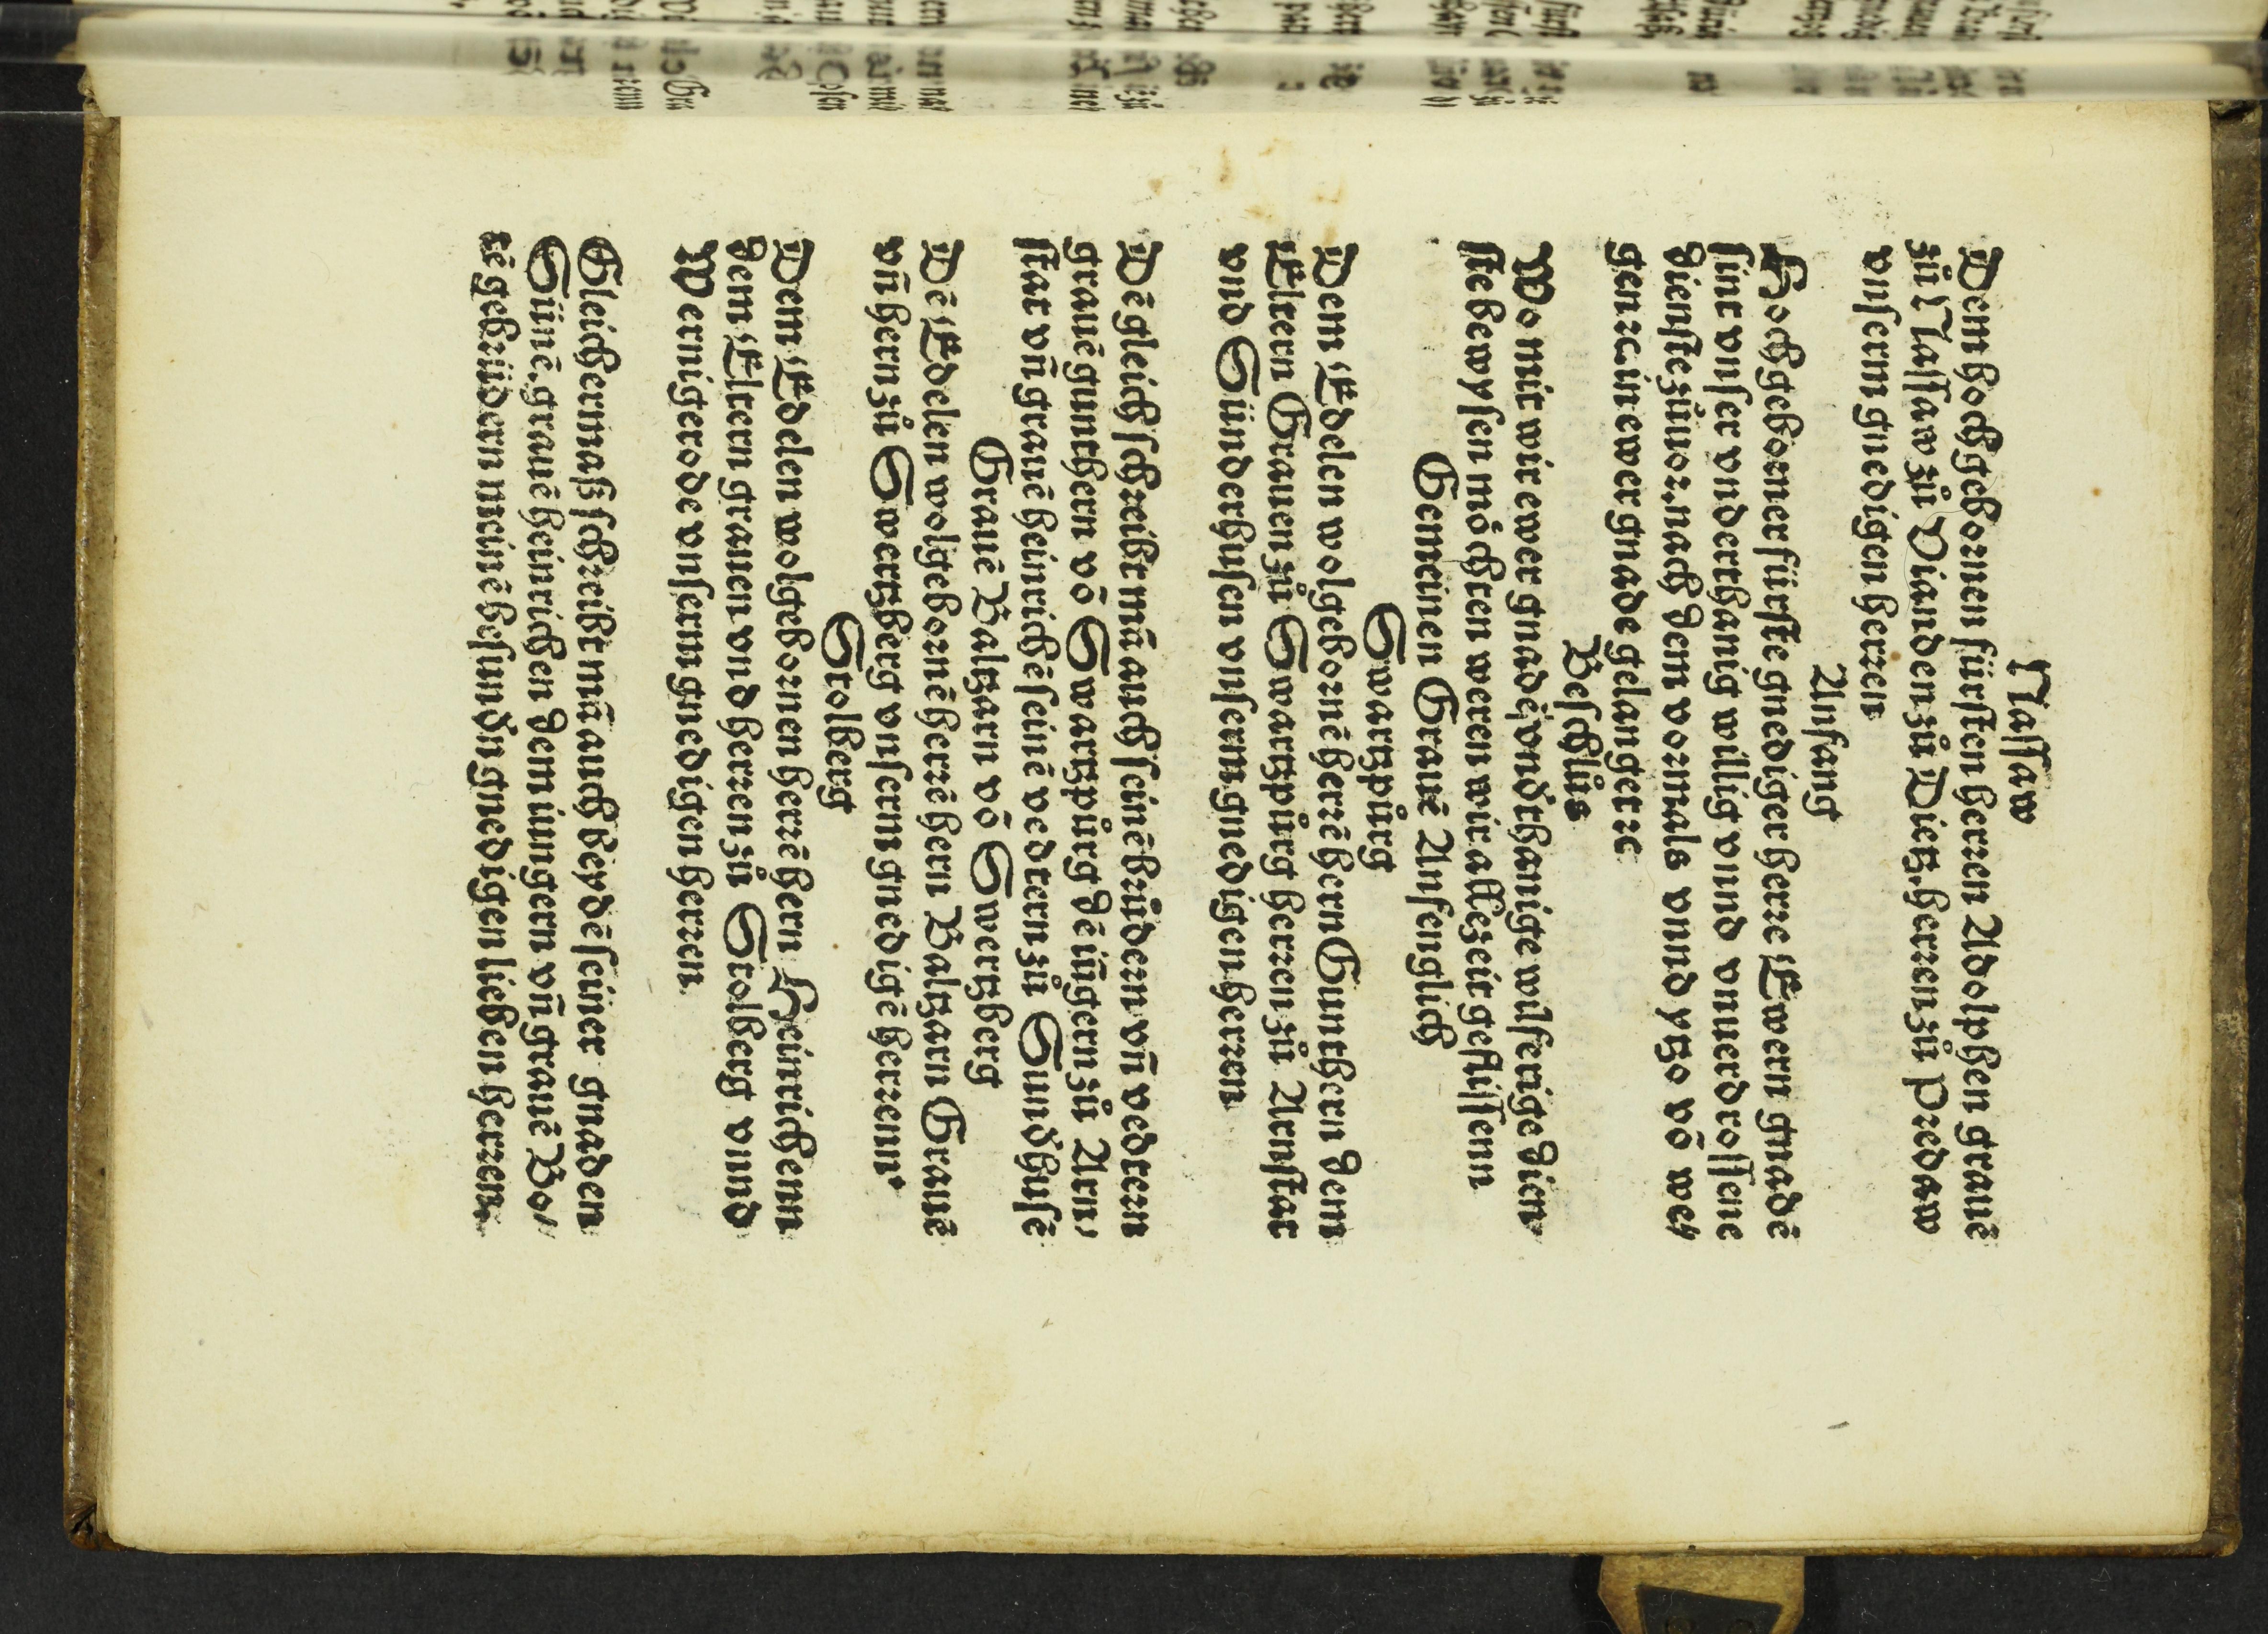 Nassaw
Dem hochgebornen fürsten herren Adolphen grauē
zů Nassaw zů Vianden zů Dietz. herren zů Predaw
vnserm gnedigen herren
Anfang
Hochgeborner fürste gnediger herre Ewern gnadē
sint vnser vnderthanig willig vnnd vnuerdrossene
dienste zůuor. nach dem vormals vnnd ytzo vō we⸗
gen ꝛc. in ewer gnade gelanget ꝛc
Beschlůs
Wo mit wir ewer gnadē vndthanige wilferige dien⸗
ste bewysen möchten weren wir allezeit geflissenn
Gemeinen Grauē Anfenglich
Swartzpůrg
Dem Edelen wolgebornē herrē hern Gunthern dem
Eltern Grauen zů Swartzpůrg herren zů Arnstat
vnd Sünderhusen vnserm gnedigen herren
Dē gleich schreibt mā auch seinē brůdern vn̄ vedtern
grauē gunthern vō Swartzpůrg dē iūgern zů Arn⸗
stat vn̄ grauē heinrichē seinē vedtern zů Sundhusē
Grauē Baltzarn vō Swertzberg
Dē Edelen wolgebornē herrē hern Baltzarn Grauē
vn̄ hern zů Swertzberg vnserm gnedigē herrenn.
Stolberg
Dem Edelen wolgebornen herrē hern Heinrichenn
dem Eltern grauen vnd herren zů Stolberg vnnd
Wernigerode vnserm gnedigen herren
Gleichermaß schreibt mā auch beydē seiner gnaden
Sünē. grauē heinrichen dem iungern vn̄ grauē Bo⸗
tē gebrüdern meinē besundn gnedigen lieben herren.